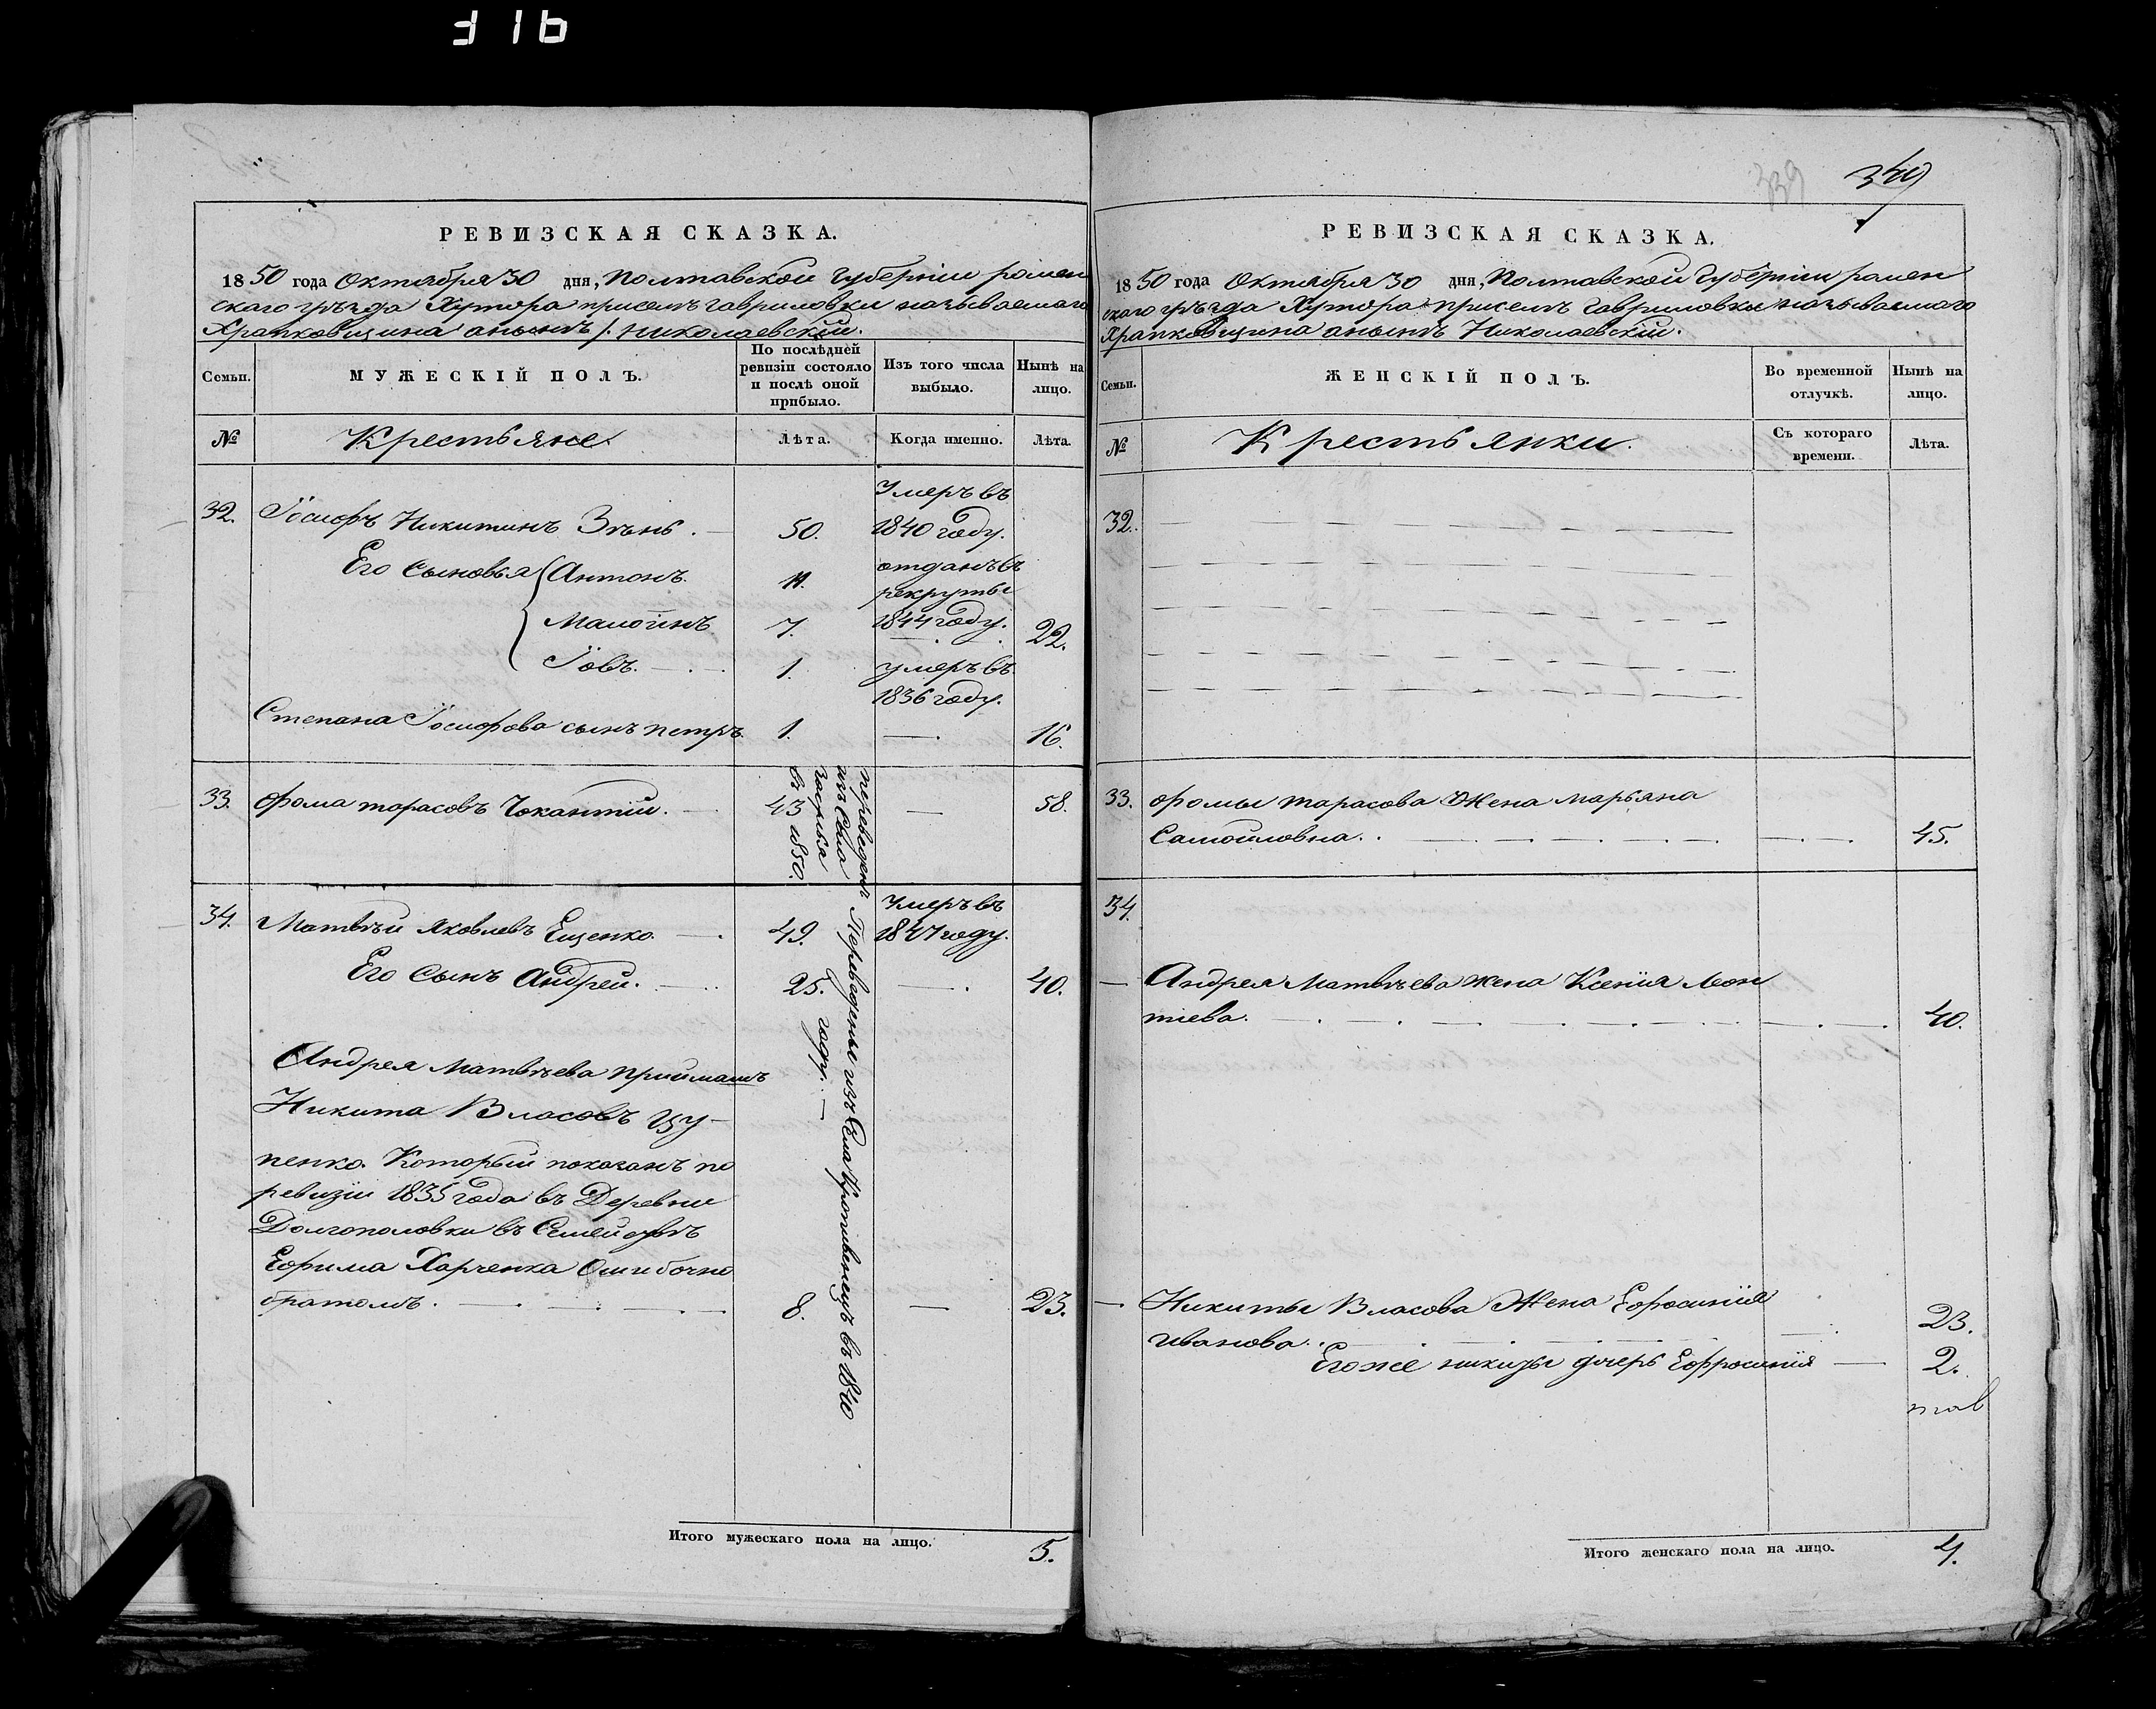 316
339
340
РЕВИЗСКАЯ СКАЗКА.
1850 года Октября 30 дня, Полтавской Губерніи ромен
скаго уѣзда Хутора при селѣ Гавриловки называемаго
Храпковщина а нынѣ Николаевскій.
Семьи.
МУЖЕСКІЙ ПОЛЪ.
По послѣдней ревизіи состояло и послѣ оной прибыло.
Изъ того числа выбыло.
Нынѣ на лицо.
№
Крестьяне.
Лѣта.
Когда именно.
Лѣта.
Умеръ въ
32. Іосифъ Никитинъ Зѣнь. 50. 1840 году.
Его Сыновья Антонъ. 11. отданъ въ
рекруты
1844 году.
Мамоінъ 7. 22.
Іовъ. 1. умеръ въ
1836 году.
Степана Іосифова сынъ петръ. 1. 16.
33. Фома тарасовъ 43 58.
переведенъ
изъ Села
въ 1850. году.
Умеръ въ
34. Матвѣй Яковлевъ Ещенко. 49. 1847 году.
Его Сынъ Андрей. 25. 40.
Переведены изъ Села Кропивенецъ въ 1840
Андрея Матвѣева приймашъ
Никита Власовъ Цу-
пенко. Который показанъ по
ревизіи 1835 года въ Деревни
Долгополовки въ Семействѣ
Ефима Харченка Ошибочно
братомъ. 8. 23.
Итого мужескаго пола на лицо. 5.
РЕВИЗСКАЯ СКАЗКА.
1850 года Октября 30 дня, Полтавской Губерніи ромен
скаго уѣзда Хутора при селѣ Гавриловки называемаго
Храпковщина а нынѣ Николаевскій.
Семьи.
ЖЕНСКІЙ ПОЛЪ.
Во временной отлучкѣ.
Нынѣ на лицо.
№
Крестьянки.
Съ котораго времени.
Лѣта.
32.
33. Фомы тарасова Жена марьяна
Самойловна. 45.
34.
Андрея Матвѣева жена Ксенія Леон
тіева. 40.
Никиты Власова Жена Ефросинія
Иванова. 23.
Его же никиты дочерь Ефросинія 2.
Итого женскаго пола на лицо. 4.